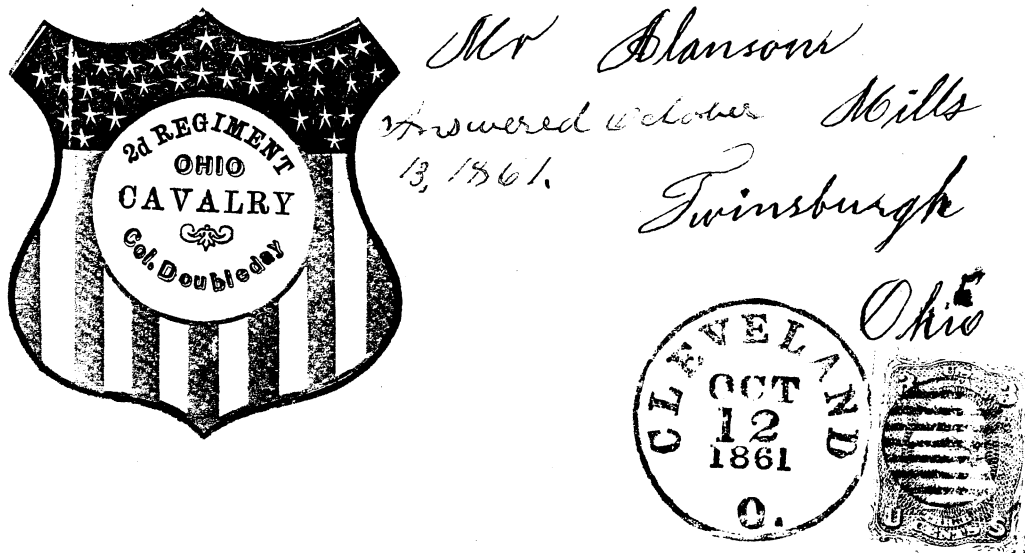 2d REGIMENT
OHIO
CAVALRY
Col. Doubleday
Mr Alanson
Mills
Answered October
13, 1861.
Twinsburgh
Ohio
CLEVELAND
OCT
12
1861
O.
3 3
U S
CENTS